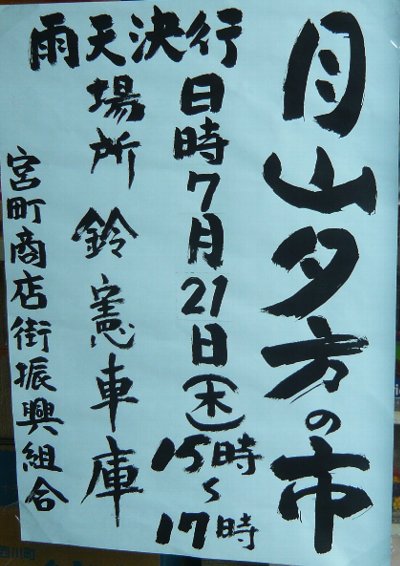 月山夕方の市
雨天決行
日時7月21日(木)
15時~17時
場所 鈴憲車庫
宮町商店街振興組合